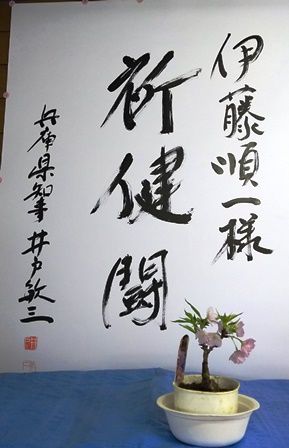 伊藤順一様
祈健闘
兵庫県知事 井戸敏三